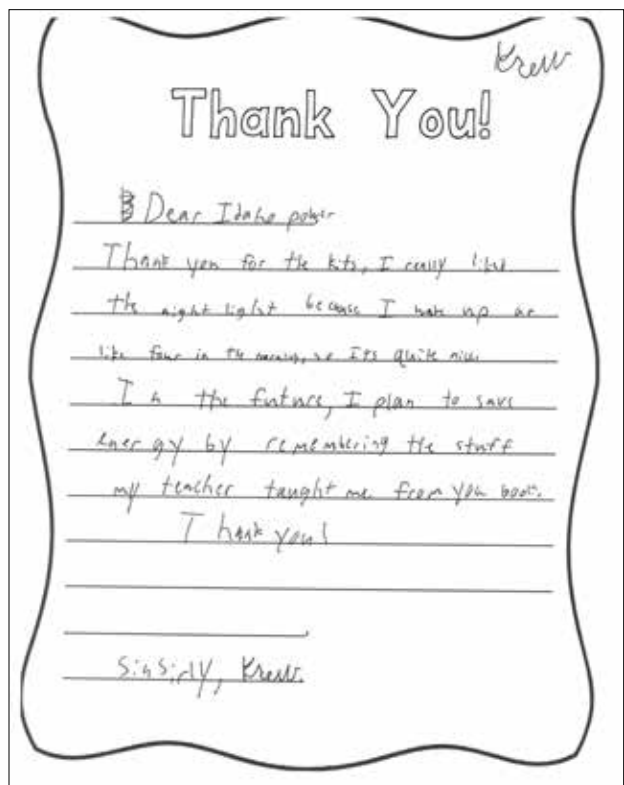 Krew
Thank You!
Dear Idaho power
Thank you for the kits, I really liked
the night light because I wake up at
like four in the morning, so Its quite nice.
In the future, I plan to save
energy by remembering the stuff
my teacher taught me from you book.
Thank you!
Sinsirly, Krew.